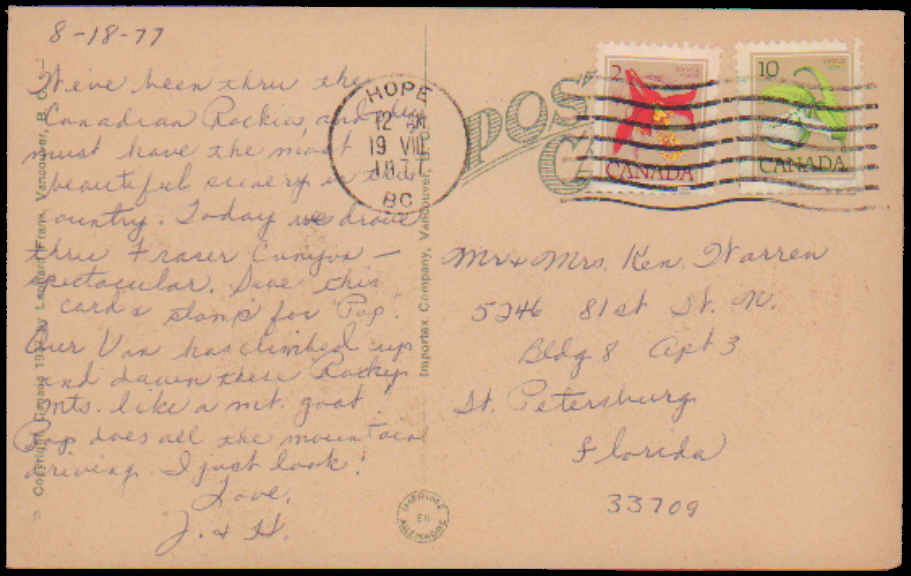 8-18-77
We've been thru the
Canadian Rockies, and they
must have the most
beautiful scenery in the
country. Today we drove
thru Fraser Canyon —
spectacular. Save this
card & stamp for Pop.
Our Van has climbed up
and down these Rocky
Mts. like a mt. goat.
Pop does all the mountain
driving. I just look!
Love,
J. & H.
HOPE
12 AM
19 VIII
1977
BC
POST
2
CANADA
10
CANADA
Mr & Mrs. Ken. Warren
5246 81st St. N.
Bldg 8 Apt 3
St. Petersburg
Florida
33709
Importex Company, Vancouver,
IMPRIMÉ
EN
ALLEMAGNE